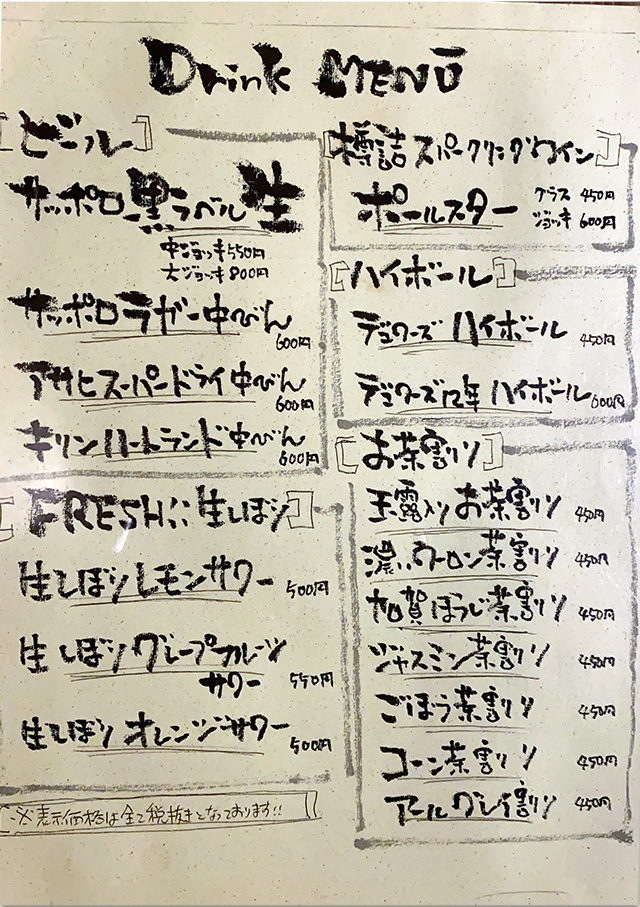 Drink MENU
[ビール]
サッポロ黒ラベル生
中ジョッキ550円
大ジョッキ800円
サッポロラガー中びん
600円
アサヒスーパードライ中びん
600円
キリンハートランド中びん
600円
[FRESH!! 生しぼり]
生しぼりレモンサワー 500円
生しぼりグレープフルーツ
サワー 550円
生しぼりオレンジサワー 500円
※表示価格は全て税抜きとなっております!!
[樽詰スパークリングワイン]
ポールスター グラス 450円
ジョッキ 600円
[ハイボール]
デュワーズ ハイボール 450円
デュワーズ12年 ハイボール 600円
[お茶割り]
玉露入りお茶割り 450円
濃いウーロン茶割り 450円
加賀ほうじ茶割り 450円
ジャスミン茶割り 450円
ごぼう茶割り 450円
コーン茶割り 450円
アールグレイ割り 450円